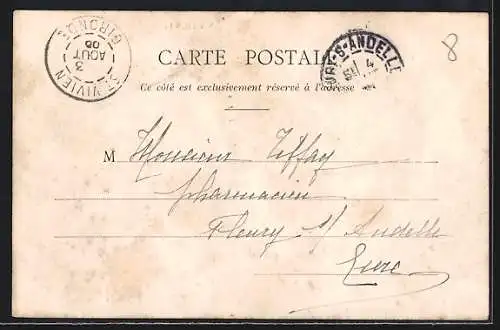 ST VIVIEN
3
AOUT
05
GIRONDE
CARTE POSTALE
URY-S-ANDELLE
4
8
Ce côté est exclusivement réservé à l'adresse
M Monsieur
pharmacien
Fleury s/ Andelle
Eure